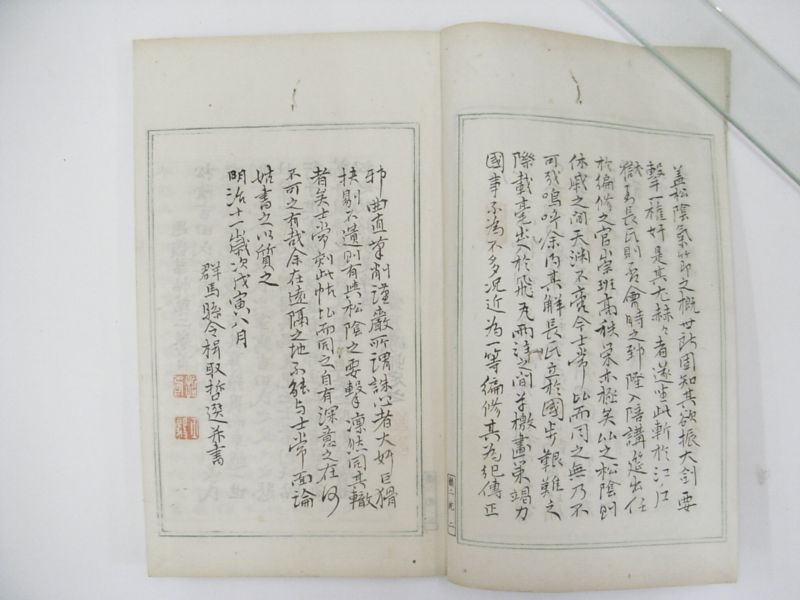 蓋松陰氣節之概世所固知其欲振大剣要
撃一權奸是其尤赫々者遂坐此斬於江戸
獄長氏則否會時之隆入陪講筵出任
於編修之官崇班高秩榮亦極矣以之松陰則
休戚之間天淵不啻今士常比而同之無乃不
可哉嗚呼余內其解長氏立於國步艱難之
際載毫出入於飛丸雨注之間草檄畫策竭力
國事不為不多況近為一等編修其為紀傳正
邪曲直筆削謹嚴所謂誅心者大奸巨猾
抉剔不遺則有與松陰之要撃凛然同其轍
者矣士常刻此帖比而同之自有深意之在何
不可之有哉余在遠隔之地不能与士常面論
姑書之以質之
明治十一歳次戊寅八月
群馬縣令楫取哲選并書